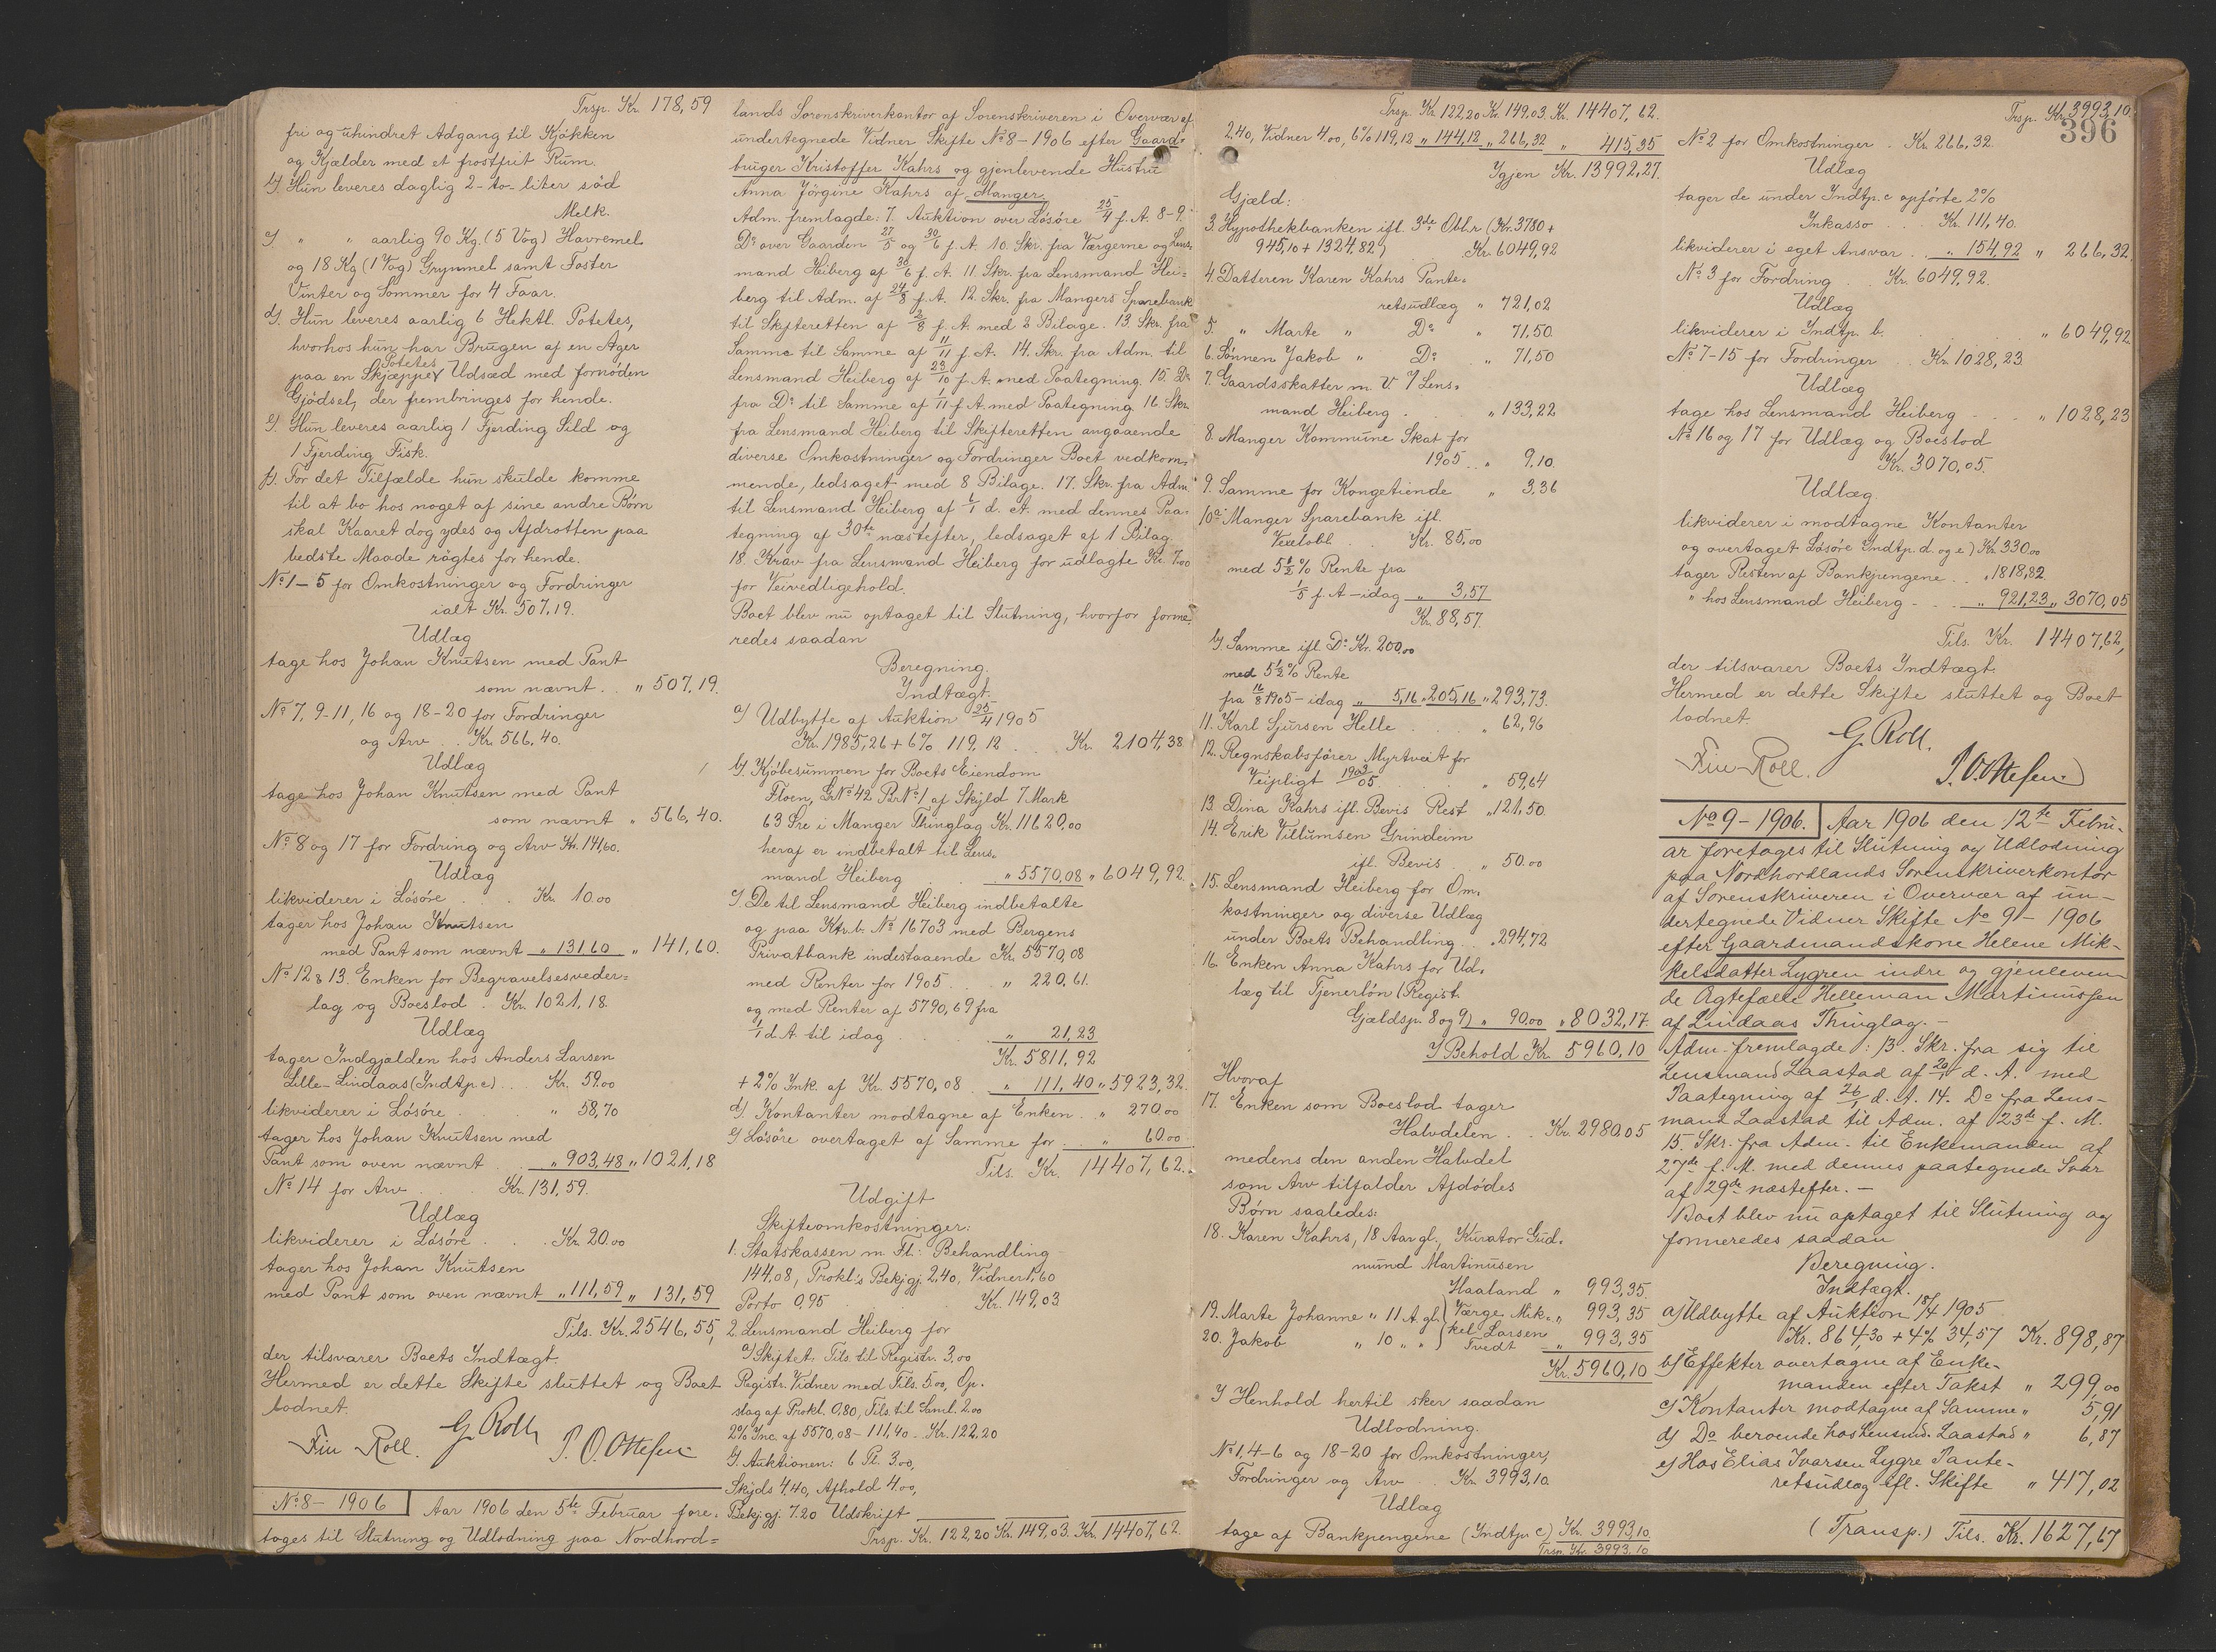 Trsp. Kr. 178,59
fri og uhindret Adgang til Kjøkken
og Kjælder med et frostfrit Rum.
b). Hun leveres daglig 2-to-liter sød
Melk.
c). " " aarlig 90 Kg. (5 Vog) Havremel
og 18 Kg (1 Vog) Grynmel samt Foster
Vinter og Sommer for 4 Faar.
d). Hun leveres aarlig 6 Hektl. Potetes,
hvorhos hun har Brugen af en Ager
paa en Skjæppes Potetes Udsæd med fornøden
Gjødsel, der frembringes for hende.
e). Hun leveres aarlig 1 Fjerding Sild og
1 Fjerding Fisk.
f). For det Tilfælde hun skulde komme
til at bo hos noget af sine andre Børn
skal Kaaret dog ydes og Afdrotten paa
bedste Maade røgtes for hende.
No 1-5 for Omkostninger og Fordringer
ialt Kr. 507,19.
Udlæg
tage hos Johan Knutsen med Pant
som nævnt . . " 507,19.
No 7, 9-11, 16 og 18-20 for Fordringer
og Arv . . Kr. 566,40.
Udlæg
tage hos Johan Knutsen med Pant
som nævnt " 566,40.
No 8 og 17 for Fordring og Arv Kr. 141,60.
Udlæg
likviderer i Løsøre . . Kr. 10.00
tager hos Johan Knutsen
med Pant som nævnt " 131.60 " 141,60.
No 12 & 13. Enken for Begravelsesveder=
lag og Boeslod . Kr. 1021,18.
Udlæg
tager Indgjælden hos Anders Larsen
Lille-Lindaas (Indtp. c) . . Kr. 59.00
likviderer i Løsøre . . " 58,70
tager hos Johan Knutsen med
Pant som oven nævnt . . " 903,48 " 1021,18
No 14 for Arv . . Kr. 131,59.
Udlæg
likviderer i Løsøre . . Kr. 20.00
tager hos Johan Knutsen
med Pant som oven nævnt " 111,59 " 131,59
Tils. Kr. 2546,55,
der tilsvarer Boets Indtægt.
Hermed er dette Skifte sluttet og Boet
lodnet.
G. Roll
Fin Roll. P. O. Ottesen
No 8-1906 Aar 1906 den 5te Februar fore=
tages til Slutning og Udlodning paa Nordhord=
lands Sorenskriverkontor af Sorenskriveren i Overvær af
undertegnede Vidner Skifte No 8-1906 efter Gaard=
bruger Kristoffer Kahrs og gjenlevende Hustru
Anna Jørgine Kahrs af Manger.
Adm. fremlagde: 7. Auktion over Løsøre 25/4 f. A. 8-9.
Do over Gaarden 27/5 og 30/6 f. A. 10. Skr. fra Værgerne og Lens=
mand Heiberg af 30/6 f. A. 11. Skr. fra Lensmand Hei=
berg til Adm. af 24/8 f. A. 12. Skr. fra Mangers Sparebank
til Skifteretten af 2/8 f. A. med 2 Bilage. 13. Skr. fra
Samme til Samme af 11/11 f. A. 14. Skr. fra Adm. til
Lensmand Heiberg af 23/10 f. A. med Paategning. 15. Do
fra Do til Samme af 1/11 f. A. med Paategning 16. Skr.
fra Lensmand Heiberg til Skifteretten angaaende
diverse Omkostninger og Fordringer Boet vedkom=
mende, ledsaget med 8 Bilage. 17. Skr. fra Adm.
til Lensmand Heiberg af 6/1 d. A. med dennes Paa=
tegning af 30te næstefter, ledsaget af 1 Bilag
18. Krav fra Lensmand Heiberg for udlagte Kr. 7.00
for Veivedligehold.
Boet blev nu optaget til Slutning, hvorfor forme=
redes saadan
Beregning.
Indtægt.
a) Udbytte af Auktion 25/4 1905
Kr. 1985,26 + 6% 119,12 . . Kr. 2104,38
b). Kjøbesummen for Boets Eiendom
Floen, G.No 42 Br.No 1 af Skyld 7 Mark
63 Øre i Manger Thinglag Kr. 11620.00
heraf er indbetalt til Lens=
mand Heiberg . . " 5570,08 " 6049,92.
c). De til Lensmand Heiberg indbetalte
og paa Ktr.b. No 16703 med Bergens
Privatbank indestaaende Kr. 5570,08
med Renter for 1905 . . " 220,61.
og med Renter af 5790,69 fra
1/1 d. A. til idag . . " 21,23
Kr. 5811,92
+ 2% Ink. af Kr. 5570,08 . . " 111,40 " 5923,32.
d). Kontanter modtagne af Enken . " 270.00
e). Løsøre overtaget af Samme for . . " 60.00
Tils. Kr. 14407,62.
Udgift
Skifteomkostninger:
1. Statskassen m. Fl.: Behandling
144,08, Prokl's Bekjgj. 2,40, Vidner 1,60
Porto 0,95 Kr. 149,03
2. Lensmand Heiberg for
a) Skiftet: Tils. til Registr. 3.00
Registr. Vidner med Tils. 5.00, Op=
slag af Prokl. 0,80, Tils. til Saml. 2.00
2% Inc. af 5570,08 - 111,40 - Kr. 122,20
b). Auktionen: 6 Pl. 3.00,
Skyds 4,40, Afhold 4.00,
Bekjgj. 7.20 Udskrift
Trsp. Kr. 122,20 Kr. 149,03. Kr. 14407,62.
Trsp. Kr. 122.20 Kr. 149.03. Kr. 14407,62.
2,40, Vidner 4.00, 6% 119,12 " 144,12 " 266,32 " 415,35
Igjen Kr. 13992,27.
Gjæld:
3. Hypothekbanken ifl. 3de Obl.r (Kr. 3780 +
945,10 + 1324,82) Kr. 6049,92
4. Datteren Karen Kahrs Pante=
retsudlæg " 721,02
5. " Marte " Do " 71,50.
6. Sønnen Jakob " Do " 71,50
7. Gaardsskatter m. V. / Lens=
mand Heiberg . . " 133,22
8. Manger Kommune Skat for
1905 . . " 9,10.
9. Samme for Kongetiende " 3,36
10a. Manger Sparebank ifl.
Vexelobl. . . Kr. 85.00
med 5½% Rente fra
1/5 f. A.-idag " 3,57
Kr. 88,57.
b). Samme ifl. Do Kr. 200.00
med 5½% Rente
fra 16/8 1905-idag " 5,16 " 205,16 " 293,73.
11. Karl Sjursen Helle . . " 62,96
12. Regnskabsfører Myrtveit for
Veipligt 1903/05 . . " 59,64
13. Dina Kahrs ifl. Bevis Rest " 121,50.
14. Erik Villumsen Grindeim
ifl. Bevis . " 50.00
15. Lensmand Heiberg for Om=
kostninger og diverse Udlæg
under Boets Behandling . . " 294,72
16. Enken Anna Kahrs for Ud=
læg til Tjenerløn (Regist.
Gjældsp. 8 og 9) " 90.00 " 8032,17.
I Behold Kr. 5960,10
Hvoraf
17. Enken som Boeslod tager
Halvdelen . . Kr. 2980,05
medens den anden Halvdel
som Arv tilfalder Afdødes
Børn saaledes:
18. Karen Kahrs, 18 Aar gl., Kurator Gud=
mund Martinusen
Haaland " 993,35.
19. Marte Johanne " 11 A. gl. } Værge Mik= " 993,35
kel Larsen
20. Jakob " 10 " " } Tvedt " 993,35
Kr. 5960,10
I Henhold hertil sker saadan
Udlodning.
No 1, 4-6 og 18-20 for Omkostninger,
Fordringer og Arv . Kr. 3993,10.
Udlæg
tage af Bankpengene (Indtp. c) Kr. 3993,10
Trsp. Kr. 3993,10
Trsp. Kr. 3993,10.
396
No 2 for Omkostninger . Kr. 266,32.
Udlæg
tager de under Indtp. c opførte 2%
Inkasso . . . Kr. 111,40.
likviderer i eget Ansvar . . " 154,92 " 266,32
No 3 for Fordring . . Kr. 6049,92.
Udlæg
likviderer i Indtp. b. . . " 6049,92.
No 7-15 for Fordringer . . Kr. 1028,23
Udlæg
tage hos Lensmand Heiberg . . . " 1028,23
No 16 og 17 for Udlæg og Boeslod
Kr. 3070,05.
Udlæg.
likviderer i modtagne Kontanter
og overtaget Løsøre (Indtp. d. og e) Kr. 330.00
tager Resten af Bankpengene . . " 1818,82.
" hos Lensmand Heiberg . . " 921,23 " 3070,05
Tils. Kr. 14407,62,
der tilsvarer Boets Indtægt.
Hermed er dette Skifte sluttet og Boet
lodnet.
G. Roll.
Fin Roll. P. O. Ottesen
No 9-1906. Aar 1906 den 12te Febru-
ar foretages til Slutning og Udlodning
paa Nordhordlands Sorenskriverkontor
af Sorenskriveren i Overvær af un-
dertegnede Vidner Skifte No 9-1906
efter Gaardmandskone Helene Mik-
kelsdatter Lygren indre og gjenleven-
de Ægtefælle Helleman Martinussen
af Lindaas Thinglag.-
Adm. fremlagde: 13. Skr. fra sig til
Lensmand Laastad af 20/1 d. A. med
Paategning af 26/1 d. A. 14. Do fra Lens-
mand Laastad til Adm. af 23de f. M.
15. Skr. fra Adm. til Enkemanden af
27de f. M. med dennes paategnede Svar
af 29de næstefter.-
Boet blev nu optaget til Slutning og
formeredes saadan
Beregning.
Indtægt.
a) Udbytte af Auktion 18/4 1905
Kr. 864,30 + 4% 34,57 Kr. 898,87
b) Effekter overtagne af Enke-
manden efter Takst " 299,00
c) Kontanter modtagne af Samme " 5,91
d) Do beroende hos Lensmd. Laastad " 6,87
e) Hos Elias Ivarsen Lygre Pante-
retsudlæg ifl. Skifte " 417,02
(Transp.) Tils. Kr. 1627,67